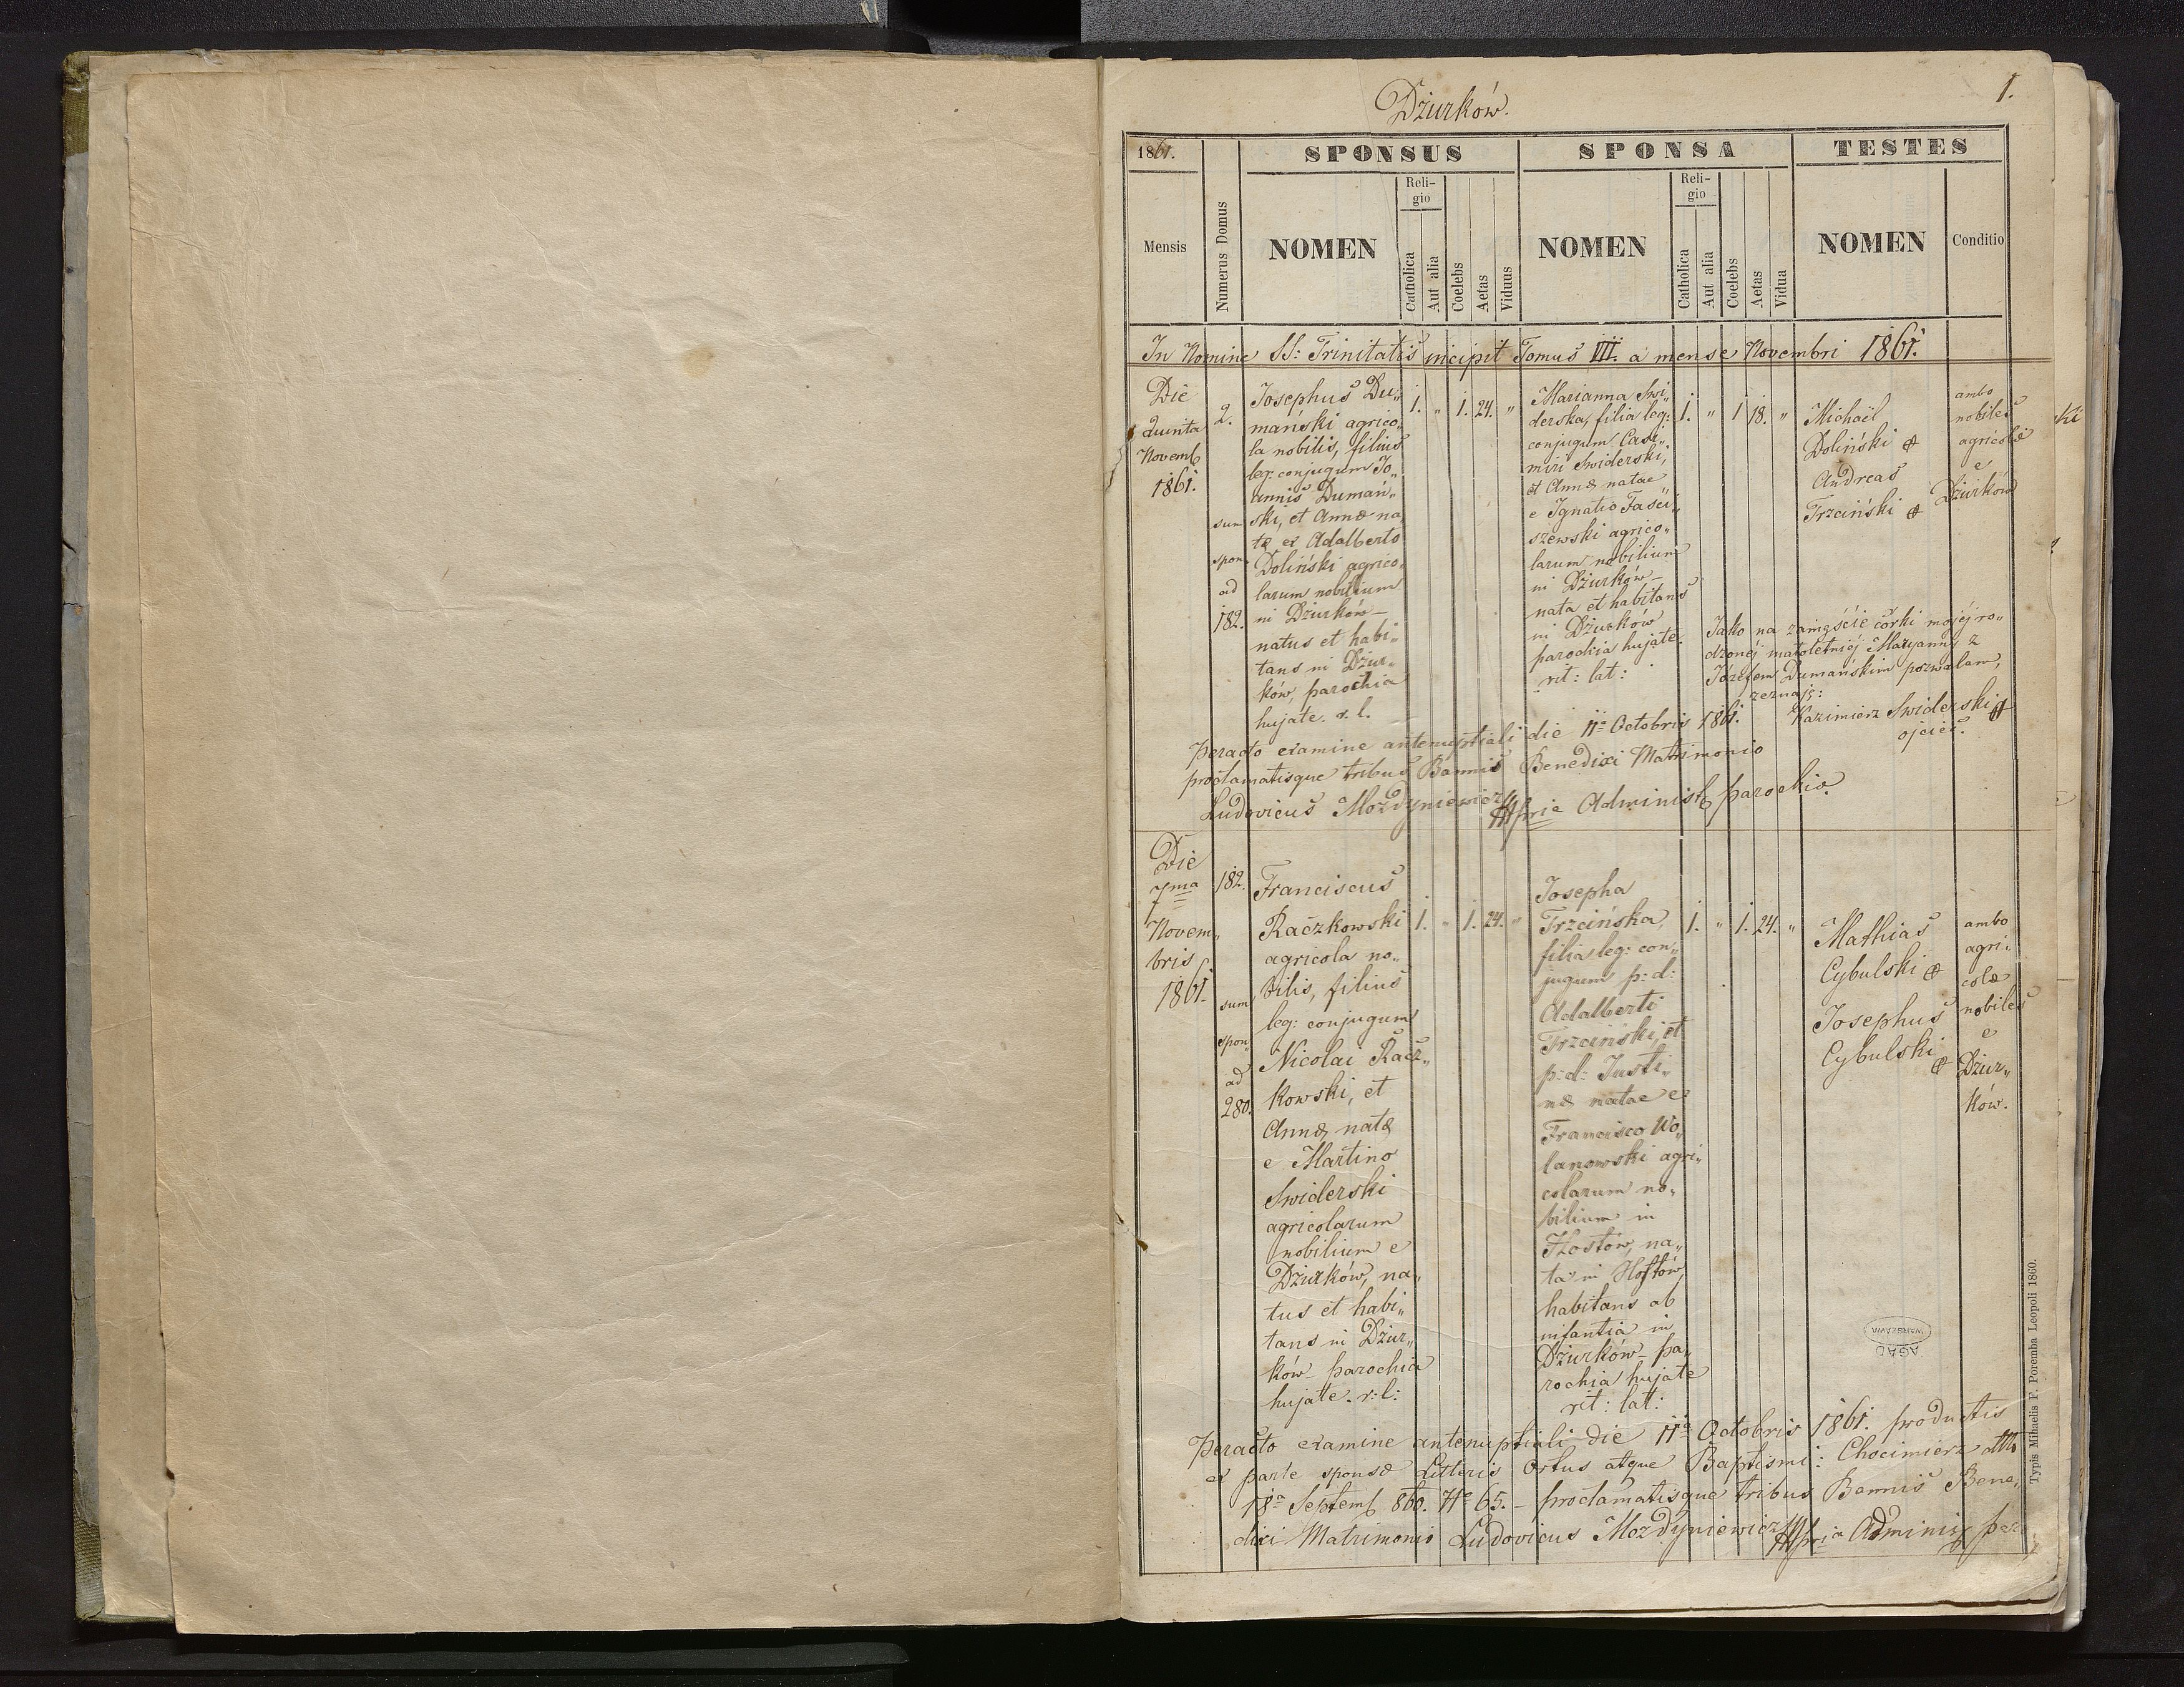 Dżurków.
1.
1861.
SPONSUS
SPONSA
TESTES
Mensis
Numerus Domus
NOMEN
Reli-
gio
Catholica
Aut alia
Coelebs
Aetas
Viduus
NOMEN
Reli-
gio
Catholica
Aut alia
Coelebs
Aetas
Vidua
NOMEN
Conditio
In Nomine SS: Trinitatis incipit Tomus VII. a mense Novembri 1861.
Die
Quinta
Novemb
1861.
2.
sum
spon„
ad
182.
Josephus Du„
mański agrico„
la nobilis, filius
leg: conjugum Jo„
annis Dumań„
ski, et Annæ na„
tæ ex Adalberto
Doliński agrico„
larum nobilium
in Dżurków –
natus et habi„
tans in Dżur„
ków, parochia
hujate. r. l.
1. „ 1. 24. „
Marianna Swi„
derska, filia leg:
conjugum Casi„
miri Swiderski,
et Annæ natae
e Ignatio Faści„
szewski agrico„
larum nobilium
in Dżurków –
nata et habitans
in Dżurków
parochia hujate.
rit: lat:
1. „ 1 18. „
Michaël
Doliński
Andreas
Trzciński
ambo
nobiles
agricolæ
e
Dżurków
Jako na zamęście córki mojéj ro„
dzonéj małoletniéj Maryanny z
Józefem Dumańskim pozwalam,
zeznaję:
Kazimierz Swiderski
ojciec.
Peracto examine antenuptiali die 11a Octobris 1861.
proclamatisque tribus Bannis Benedixi Matrimonio
Ludovicus Mozdyniewicz Mpria Administ parochiæ
Die
7ma
Novem„
bris
1861.
182.
sum
spon„
ad
280.
Franciscus
Raczkowski
agricola no„
bilis, filius
leg: conjugum
Nicolai Racz„
kowski, et
Annæ natæ
e Martino
Swiderski
agricolarum
nobilium e
Dżurków, na„
tus et habi„
tans in Dżur„
ków – parochia
hujate. r: l:
1. „ 1. 24. „
Josepha
Trzcińska,
filia leg: con„
jugum p: d:
Adalberti
Trzciński, et
p: d: Justi„
næ natae e
Francisco Wo„
lanowski agri„
colarum no„
bilium in
Hostów, na„
ta in Hostów
habitans ab
infantia in
Dżurków – pa„
rochia hujate
rit: lat:
1. „ 1. 24. „
Mathias
Cybulski
Josephus
Cybulski
ambo
agri„
colæ
nobiles
e
Dżur„
ków.
Peracto examine antenuptiali die 11a Octobris 1861. productis
ex parte sponsæ Litteris Ortus atque Baptismi: Chocimierz
18a Septemb 860. No 65. – proclamatisque tribus Bannis Bene„
dixi Matrimonio Ludovicus Mozdyniewicz Mpria Administ par
AGAD
WARSZAWA
Typis Mihaelis F. Poremba Leopoli 1860.